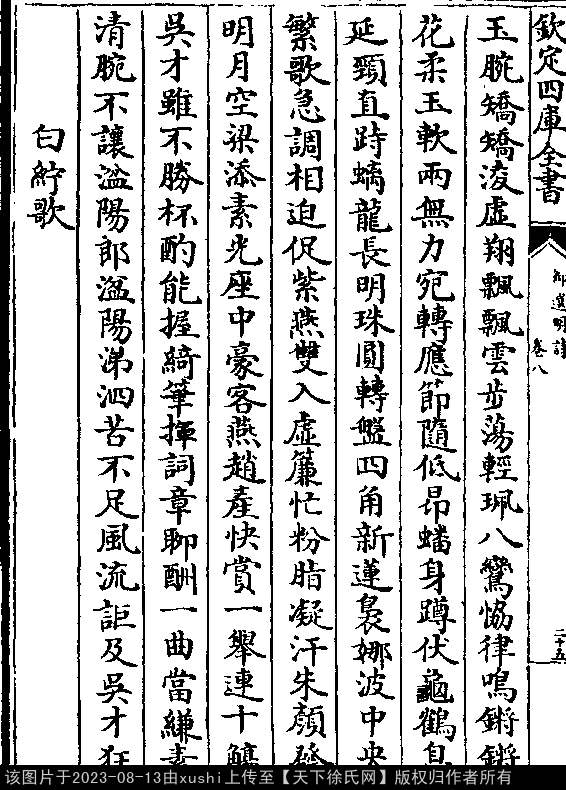 欽定四庫全書
御選明詩
卷八
二十五
玉腕矯矯淩虛翔飄飄雲步蕩輕珮八鸞恊律鳴鏘鏘
花柔玉軟兩無力宛轉應節隨低昂蟠身蹲伏龜鶴息
延頸直跱螭龍長明珠圓轉盤四角新蓮裊娜波中央
繁歌急調相迫促紫燕雙入虛簾忙粉脂凝汗朱顏發
明月空梁添素光座中豪客燕趙產快賞一舉連十觴
吳才雖不勝杯酌能握綺筆揮詞章聊酬一曲當縑素
清腕不讓湓陽郎湓陽涕泗苦不足風流詎及吳才狂
白紵歌
该图片于2023-08-13由xushi上传至【天下徐氏网】版权归作者所有